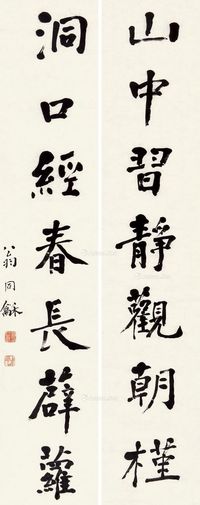 山中習靜觀朝槿
洞口經春長薜蘿
翁同龢